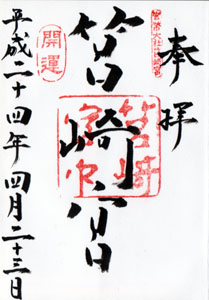 奉拝
筥崎宮
平成二十四年四月二十三日
開運
筥崎宮